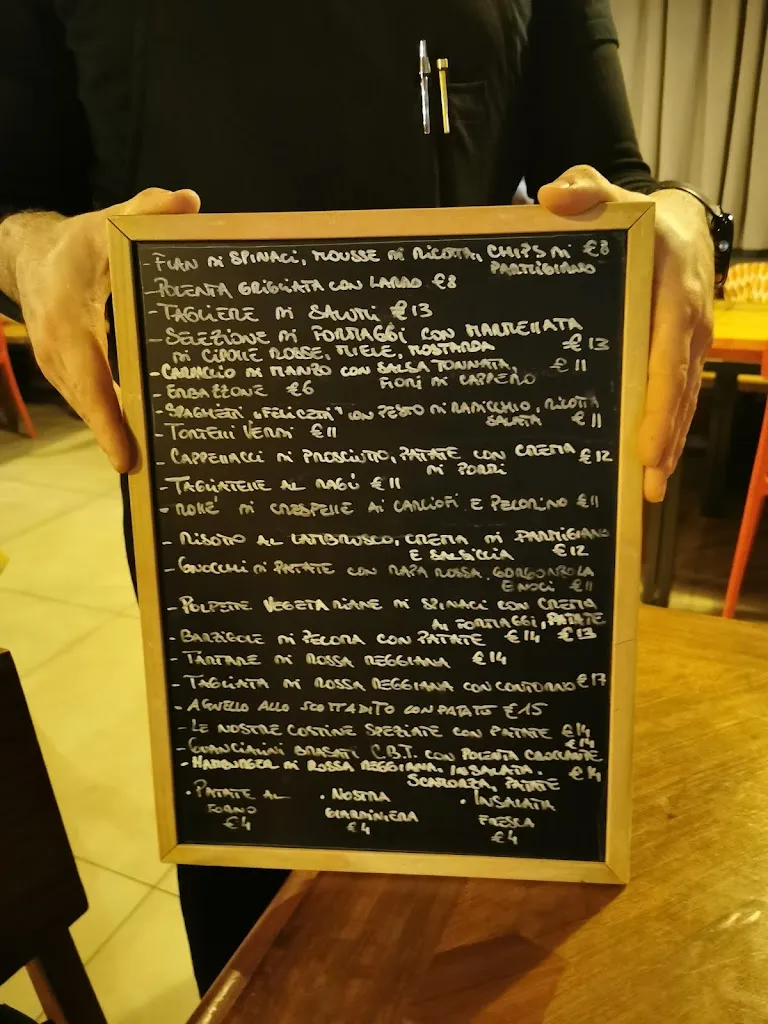 - FLAN DI SPINACI, MOUSSE DI RICOTTA, CHIPS DI €8
PARMIGIANO
- POLENTA GRIGLIATA CON LARDO €8
- TAGLIERE DI SALUMI €13
- SELEZIONE DI FORMAGGI CON MARMELLATA
DI CIPOLLE ROSSE, MIELE, MOSTARDA €13
- CARPACCIO DI MANZO CON SALSA TONNATA, €11
FIORI DI CAPPERO
- ERBAZZONE €6
- SPAGHETTI "FELICETTI" CON PESTO DI RADICCHIO, RICOTTA
SALATA €11
- TORTELLI VERDI €11
- CAPPELLACCI DI PROSCIUTTO, PATATE CON CREMA €12
DI PORRI
- TAGLIATELLE AL RAGÙ €11
- ROLLÉ DI CRESPELLE AI CARCIOFI E PECORINO €11
- RISOTTO AL LAMBRUSCO, CREMA DI PARMIGIANO
E SALSICCIA €12
- GNOCCHI DI PATATE CON RAPA ROSSA, GORGONZOLA
E NOCI €11
- POLPETTE VEGETARIANE DI SPINACI CON CREMA
AI FORMAGGI, PATATE
- BARZIGOLE DI PECORA CON PATATE €14 €13
- TARTARE DI ROSSA REGGIANA €14
- TAGLIATA DI ROSSA REGGIANA CON CONTORNO €17
- AGNELLO ALLO SCOTTADITO CON PATATE €15
- LE NOSTRE COSTINE SPEZIATE CON PATATE €14
- GUANCIALINI BRASATI C.B.T. CON POLENTA CROCCANTE €14
- HAMBURGER DI ROSSA REGGIANA, INSALATA, €14
SCAMORZA, PATATE
• PATATE AL • NOSTRA • INSALATA
FORNO GIARDINIERA FRESCA
€4 €4 €4